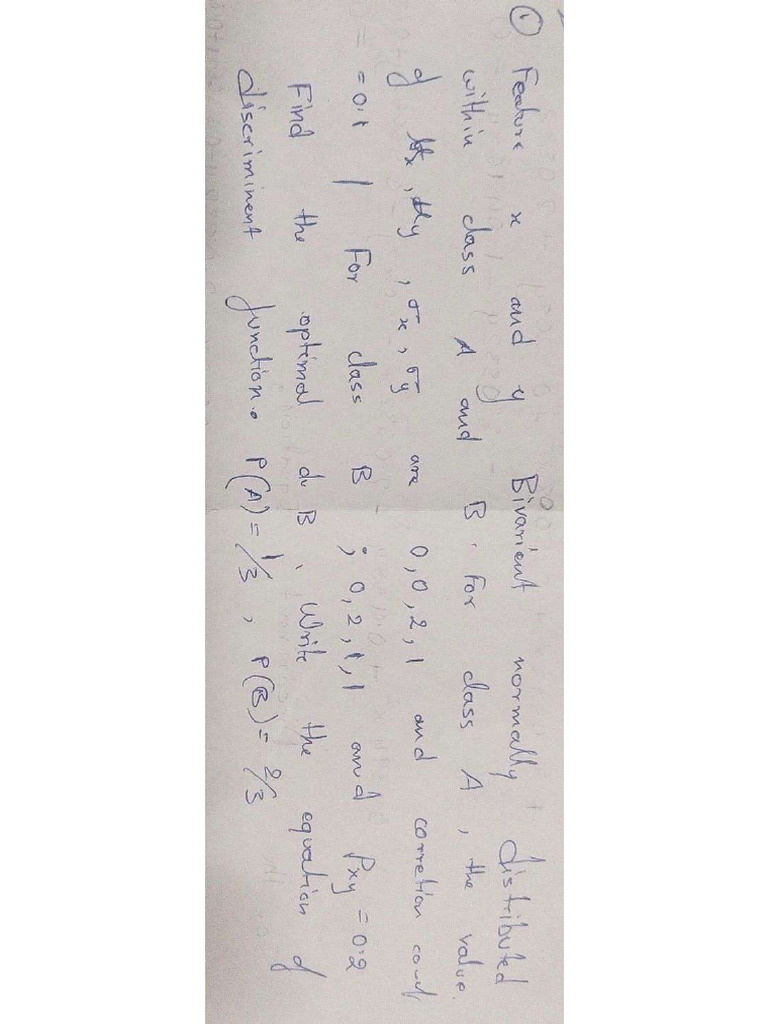 ① Feature x and y Bivarient normally distributed
within class A and B. For class A, the value
of μx, μy, σx, σy are 0, 0, 2, 1 and corretion coeff
= 0.1 / For class B ; 0, 2, 1, 1 and Pxy = 0.2
Find the optimal d B. Write the equation of
discriminent function. P(A) = 1/3, P(B) = 2/3